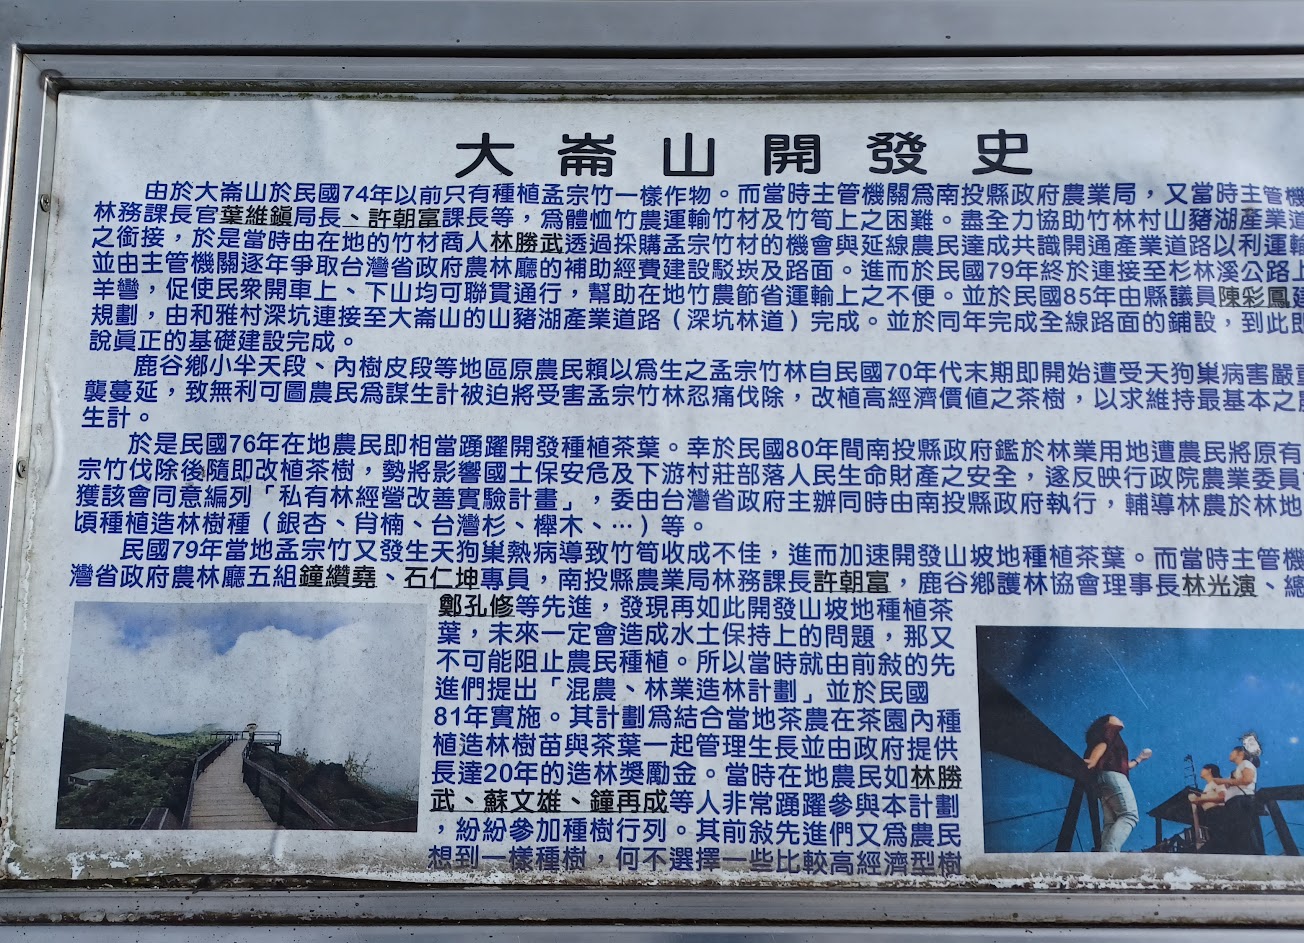 大崙山開發史
由於大崙山於民國74年以前只有種植孟宗竹一樣作物。而當時主管機關為南投縣政府農業局，又當時主管機
林務課長官葉維鎭局長、許朝富課長等，為體恤竹農運輸竹材及竹筍上之困難。盡全力協助竹林村山豬湖產業道
之銜接，於是當時由在地的竹材商人林勝武透過採購孟宗竹材的機會與延線農民達成共識開通產業道路以利運輸
並由主管機關逐年爭取台灣省政府農林廳的補助經費建設駁坎及路面。進而於民國79年終於連接至杉林溪公路上
羊彎，促使民衆開車上、下山均可聯貫通行，幫助在地竹農節省運輸上之不便。並於民國85年由縣議員陳彩鳳建
規劃，由和雅村深坑連接至大崙山的山豬湖產業道路（深坑林道）完成。並於同年完成全線路面的鋪設，到此即
說眞正的基礎建設完成。
鹿谷鄉小半天段、內樹皮段等地區原農民賴以為生之孟宗竹林自民國70年代末期即開始遭受天狗巢病害嚴重
襲蔓延，致無利可圖農民為謀生計被迫將受害孟宗竹林忍痛伐除，改植高經濟價值之茶樹，以求維持最基本之
生計。
於是民國76年在地農民即相當踴躍開發種植茶葉。幸於民國80年間南投縣政府鑑於林業用地遭農民將原有
宗竹伐除後隨即改植茶樹，勢將影響國土保安危及下游村莊部落人民生命財產之安全，遂反映行政院農業委員
獲該會同意編列「私有林經營改善實驗計畫」，委由台灣省政府主辦同時由南投縣政府執行，輔導林農於林地
頃種植造林樹種（銀杏、肖楠、台灣杉、櫸木、…）等。
民國79年當地孟宗竹又發生天狗巢熱病導致竹筍收成不佳，進而加速開發山坡地種植茶葉。而當時主管機
灣省政府農林廳五組鐘纘堯、石仁坤專員，南投縣農業局林務課長許朝富，鹿谷鄉護林協會理事長林光演、總
鄭孔修等先進，發現再如此開發山坡地種植茶
葉，未來一定會造成水土保持上的問題，那又
不可能阻止農民種植。所以當時就由前敘的先
進們提出「混農、林業造林計劃」並於民國
81年實施。其計劃為結合當地茶農在茶園內種
植造林樹苗與茶葉一起管理生長並由政府提供
長達20年的造林獎勵金。當時在地農民如林勝
武、蘇文雄、鐘再成等人非常踴躍參與本計劃
，紛紛參加種樹行列。其前敘先進們又為農民
想到一樣種樹，何不選擇一些比較高經濟型樹